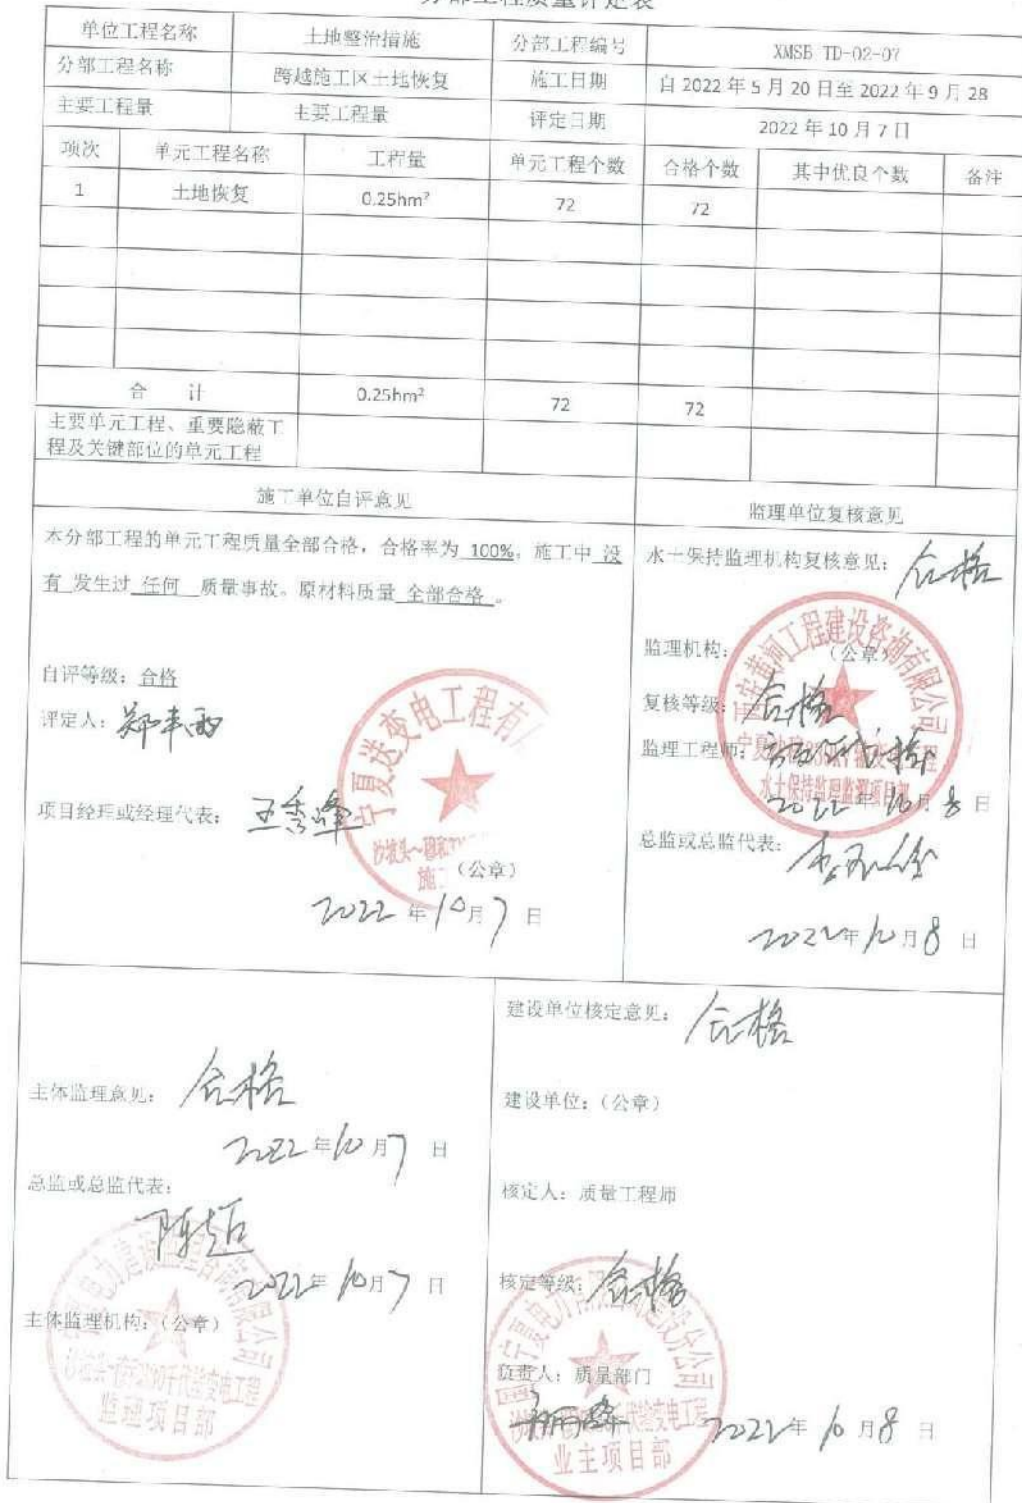 分部工程质量评定表
单位工程名称 土地整治措施 分部工程编号 XMSB TD-02-07
分部工程名称 跨越施工区土地恢复 施工日期 自 2022 年 5 月 20 日至 2022 年 9 月 28
主要工程量 主要工程量 评定日期 2022 年 10 月 7 日
项次 单元工程名称 工程量 单元工程个数 合格个数 其中优良个数 备注
1 土地恢复 0.25hm² 72 72
合 计 0.25hm² 72 72
主要单元工程、重要隐蔽工
程及关键部位的单元工程
施工单位自评意见 监理单位复核意见
本分部工程的单元工程质量全部合格，合格率为 100%。施工中 没
有 发生过 任何 质量事故。原材料质量 全部合格 。
自评等级：合格
评定人：郑丰雨
项目经理或经理代表：王秀峰
宁夏送变电工程有
施
（公章）
2022 年 10 月 7 日
水土保持监理机构复核意见：合格
监理机构：（公章）
黄河工程建设咨询有限公司
水土保持监理监测项目部
复核等级：合格
监理工程师：
2022 年 10 月 8 日
总监或总监代表：
2022 年 10 月 8 日
主体监理意见：合格
2022 年 10 月 7 日
总监或总监代表：
陈超
2022 年 10 月 7 日
主体监理机构：（公章）
监理项目部
建设单位核定意见：合格
建设单位：（公章）
核定人：质量工程师
核定等级：合格
负责人：质量部门
2022 年 10 月 8 日
业主项目部